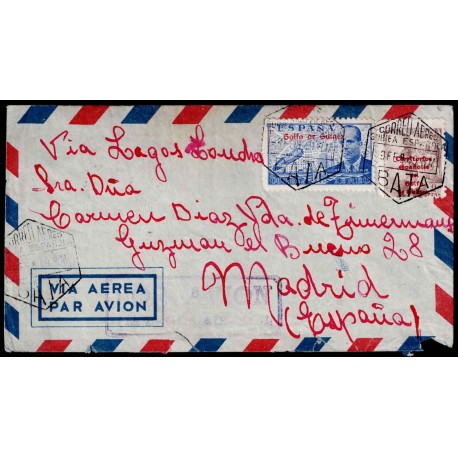 ESPAÑA
Golfo de Guinea
CORREO AEREO
GUINEA ESPAÑOLA
BATA
Territorios
españoles
Via Lagos
Sra. Dña
Carmen Diaz Vda. de Zimermann
Guzman el Bueno 28
Madrid
(España)
CORREO AEREO
VIA AEREA
PAR AVION